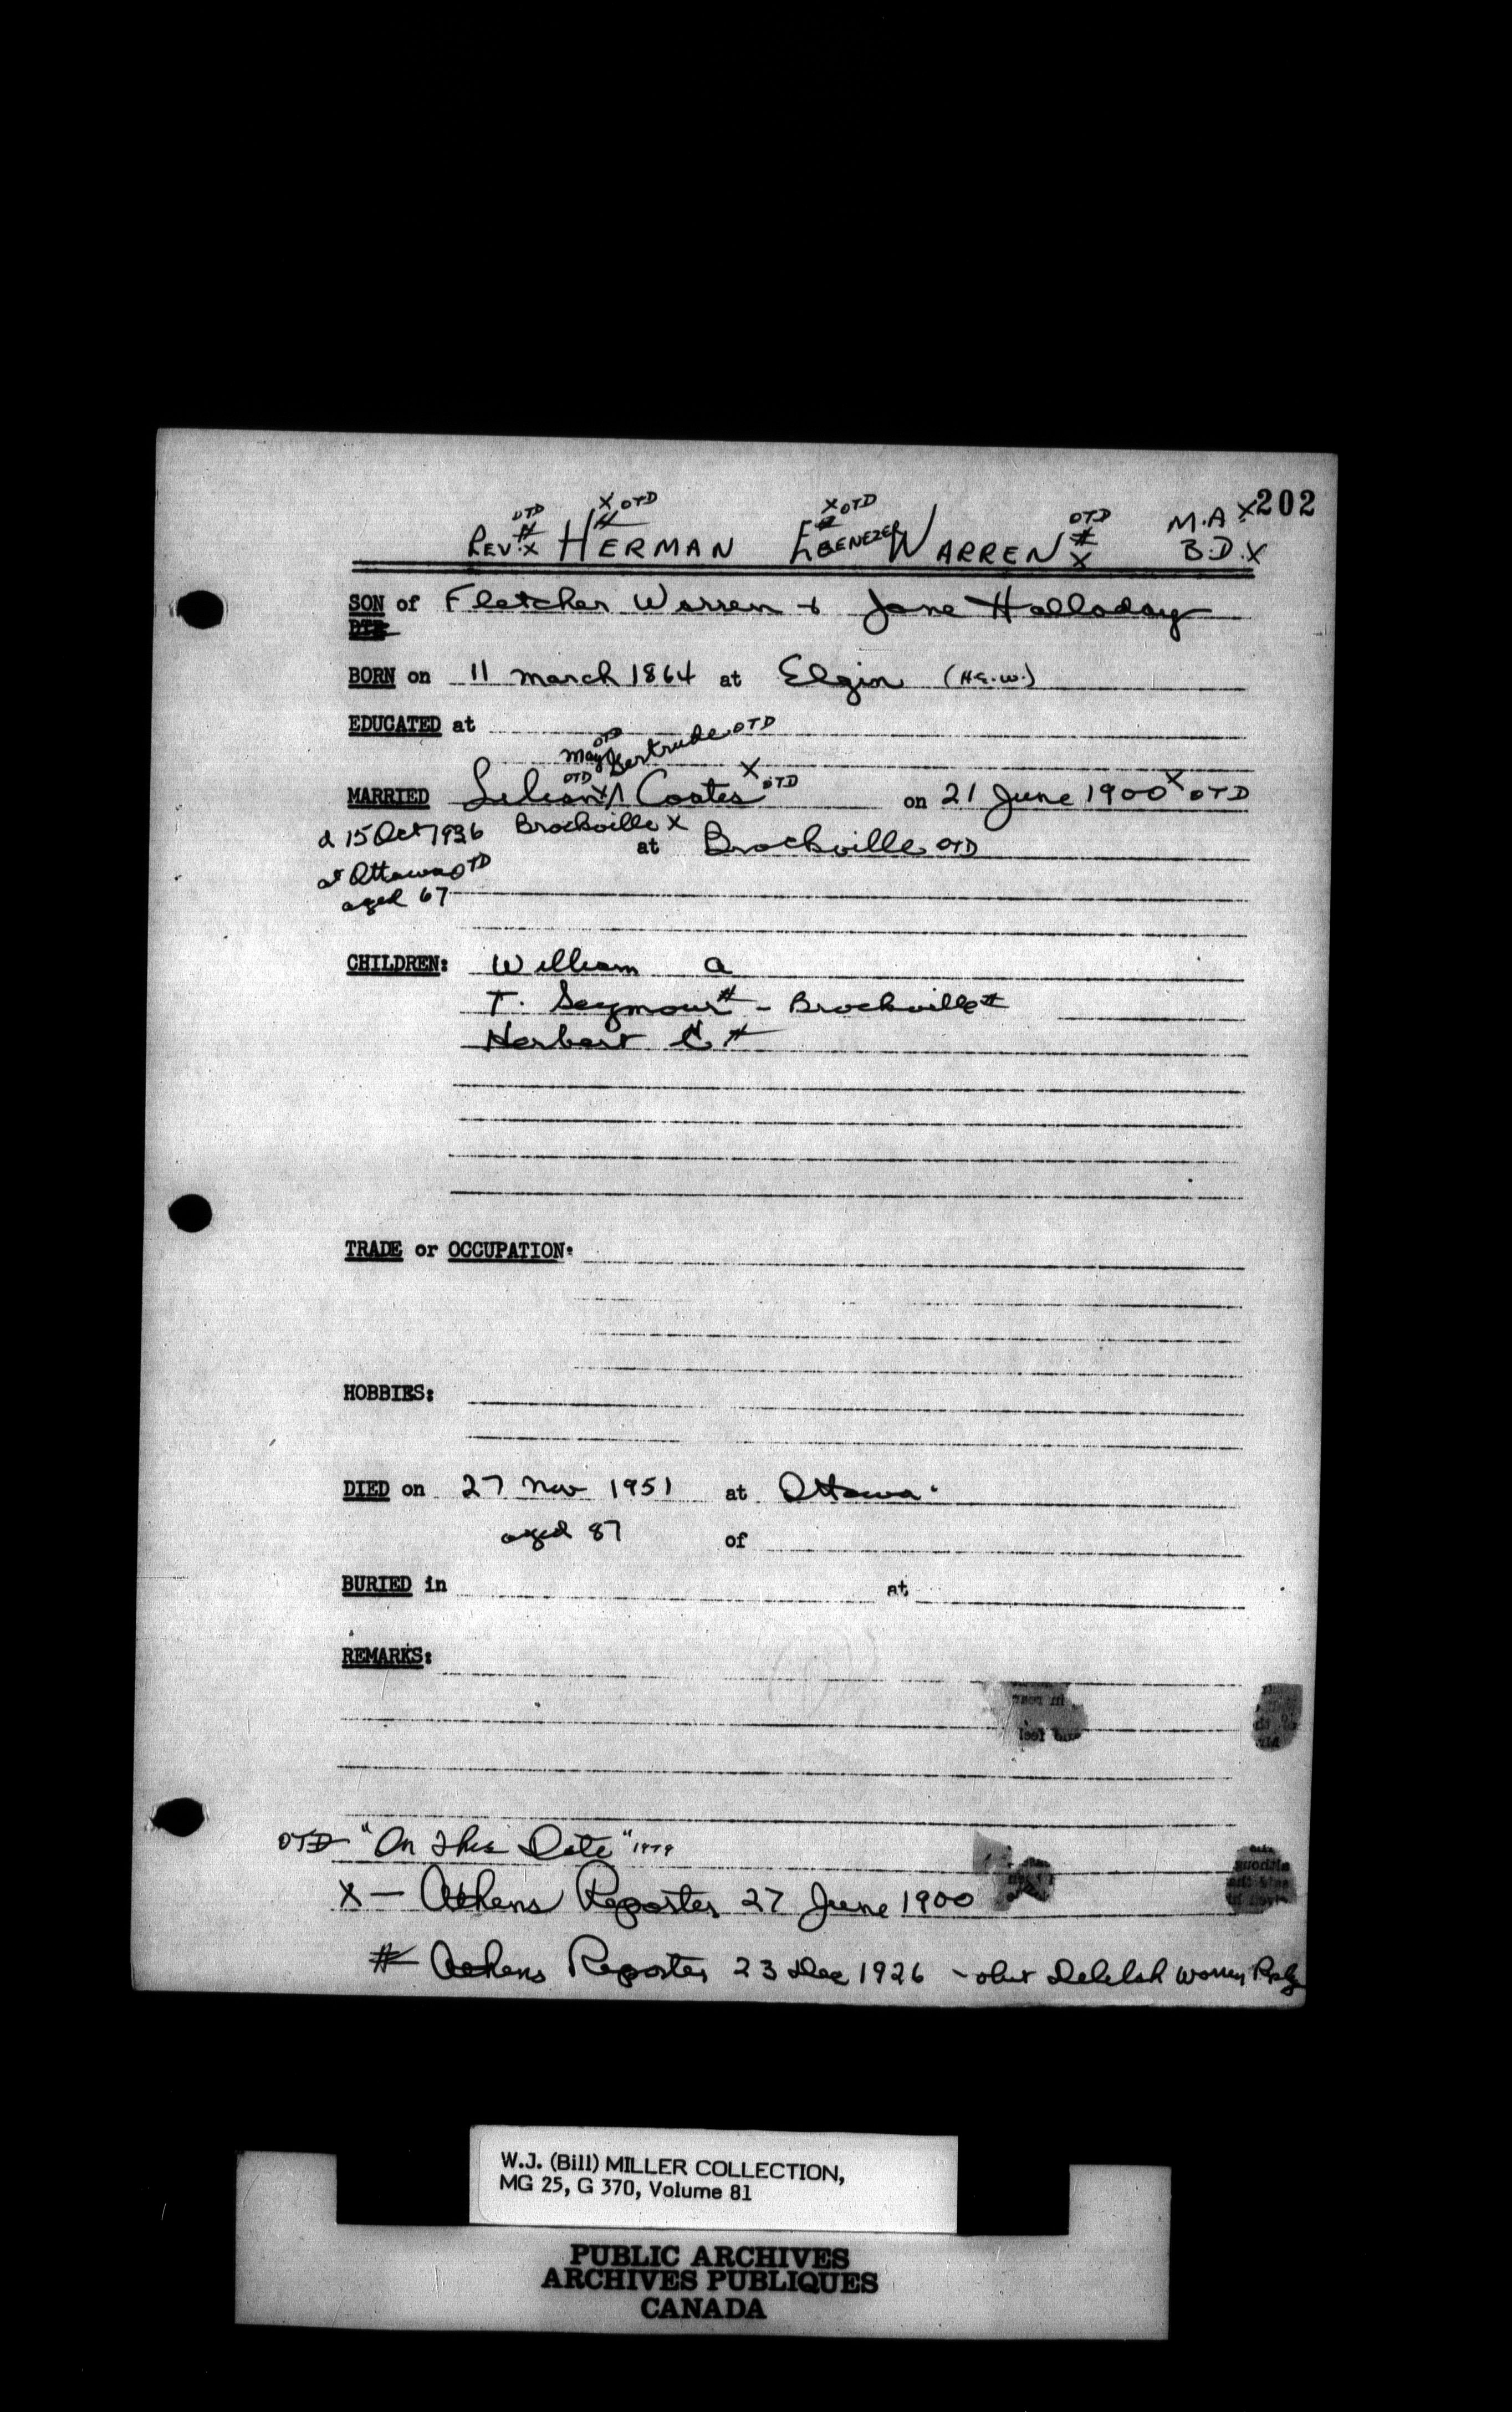 202
OTD X OTD X OTD OTD M.A. X
REV. # X HERMAN # EBENEZER # WARREN # X B.D. X
SON of Fletcher Warren + Jane Halladay
DTR
BORN on 11 March 1864 at Elgin (H.E.W.)
EDUCATED at
OTD May Gertrude OTD
MARRIED Lilian OTD X Coates X OTD on 21 June 1900 X OTD
d 15 Oct 1936 Brockville X at Brockville OTD
at Ottawa OTD
aged 67
CHILDREN: William A
T. Seymour # - Brockville #
Herbert C #
TRADE or OCCUPATION:
HOBBIES:
DIED on 27 Nov 1951 at Ottawa.
aged 87 of
BURIED in at
REMARKS:
OTD "On This Date" 1979
X - Athens Reporter 27 June 1900
# Athens Reporter 23 Dec 1926 - obit Delilah Warren
W.J. (Bill) MILLER COLLECTION,
MG 25, G 370, Volume 81
PUBLIC ARCHIVES
ARCHIVES PUBLIQUES
CANADA